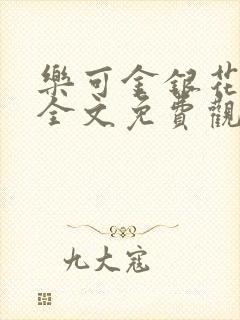 樂可金銀花
全文免費觀
九大寇